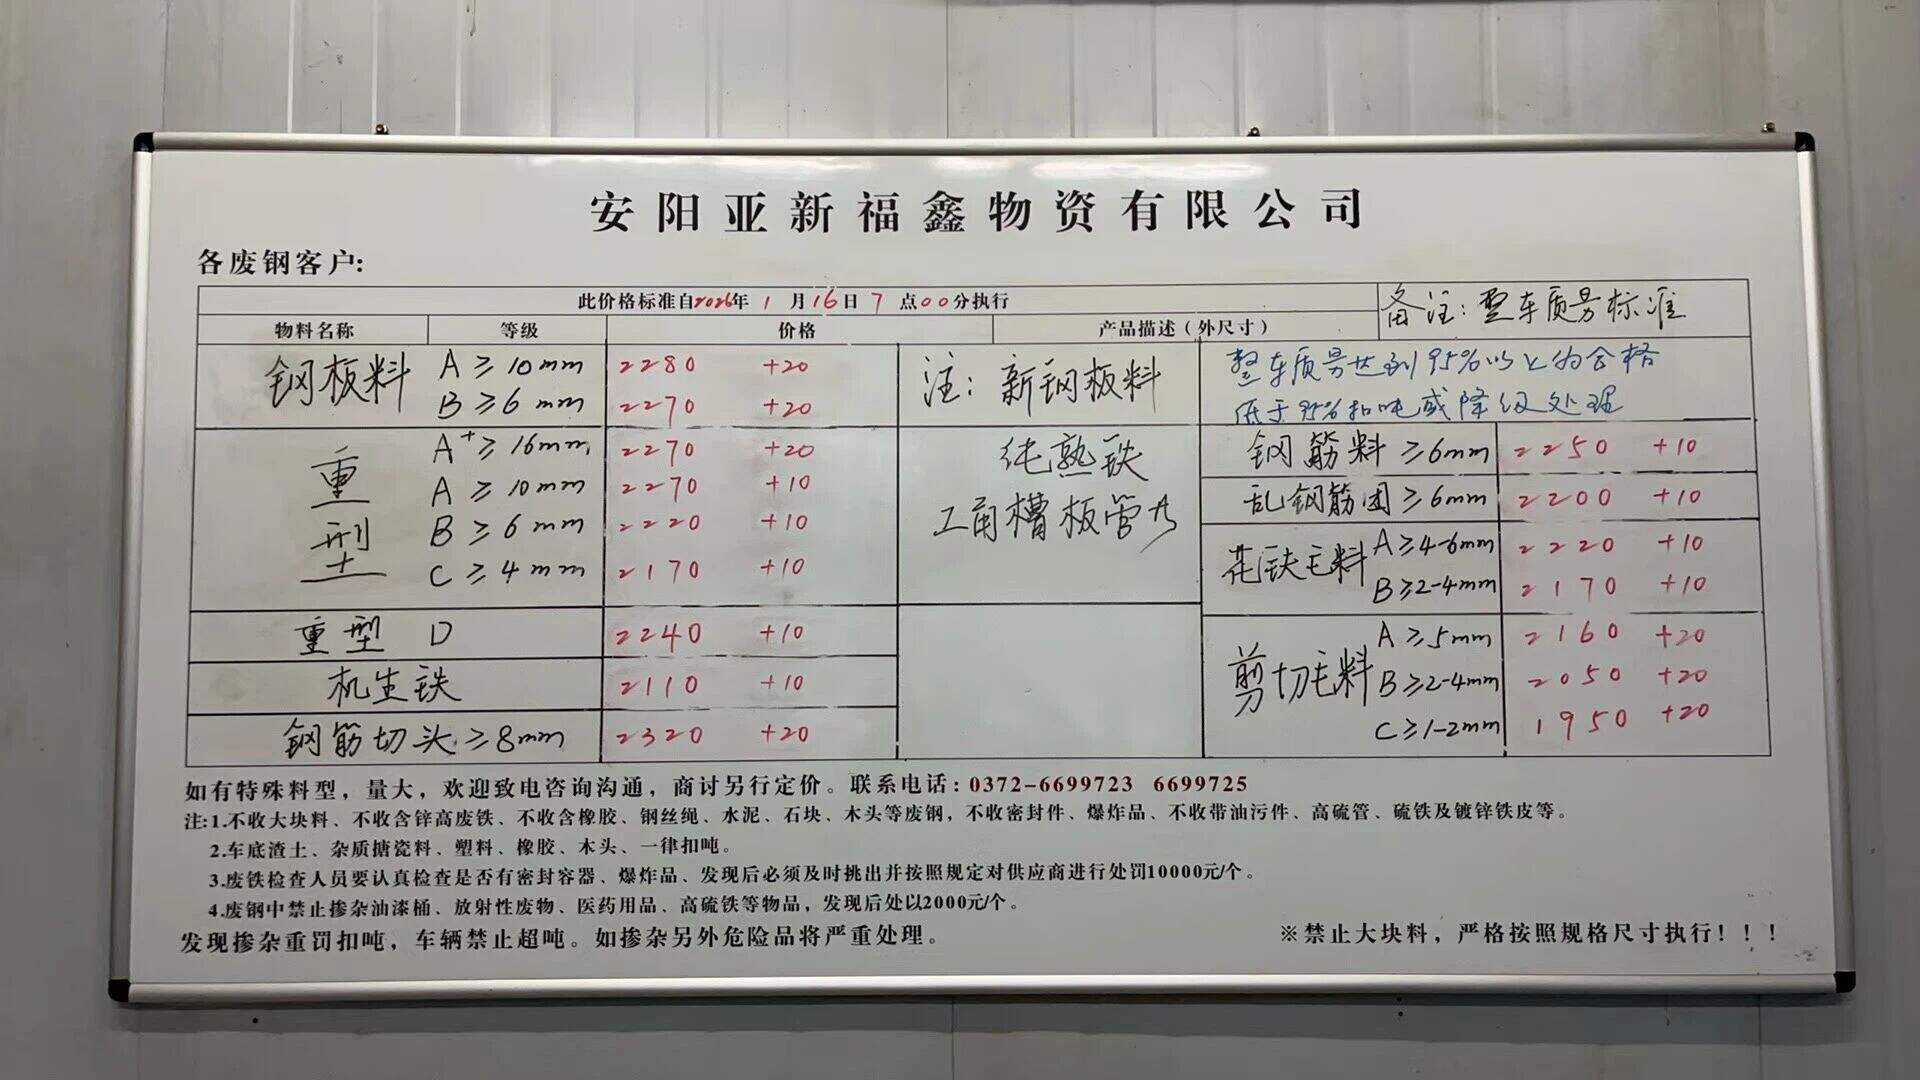 安阳亚新福鑫物资有限公司
各废钢客户:
此价格标准自2026年 1 月16日 7 点00分执行
备注: 整车质量标准
物料名称 等级 价格 产品描述（外尺寸）
钢板料 A ≥ 10mm 2280 +20
B ≥ 6mm 2270 +20
注: 新钢板料
整车质量达到95%以上为合格
低于95%扣吨或降级处理
重型 A⁺ ≥ 16mm 2270 +20
A ≥ 10mm 2270 +10
B ≥ 6mm 2220 +10
C ≥ 4mm 2170 +10
纯熟铁
工角槽板管
重型 D 2240 +10
机生铁 2110 +10
钢筋切头 ≥8mm 2320 +20
钢筋料 ≥6mm 2250 +10
乱钢筋团 ≥6mm 2200 +10
花铁毛料 A≥4-6mm 2220 +10
B≥2-4mm 2170 +10
剪切毛料 A ≥5mm 2160 +20
B≥2-4mm 2050 +20
C≥1-2mm 1950 +20
如有特殊料型，量大，欢迎致电咨询沟通，商讨另行定价。联系电话：0372-6699723 6699725
注:1.不收大块料、不收含锌高废铁、不收含橡胶、钢丝绳、水泥、石块、木头等废钢，不收密封件、爆炸品、不收带油污件、高硫管、硫铁及镀锌铁皮等。
2.车底渣土、杂质搪瓷料、塑料、橡胶、木头、一律扣吨。
3.废铁检查人员要认真检查是否有密封容器、爆炸品、发现后必须及时挑出并按照规定对供应商进行处罚10000元/个。
4.废钢中禁止掺杂油漆桶、放射性废物、医药用品、高硫铁等物品，发现后处以2000元/个。
发现掺杂重罚扣吨，车辆禁止超吨。如掺杂另外危险品将严重处理。
※禁止大块料，严格按照规格尺寸执行！！！